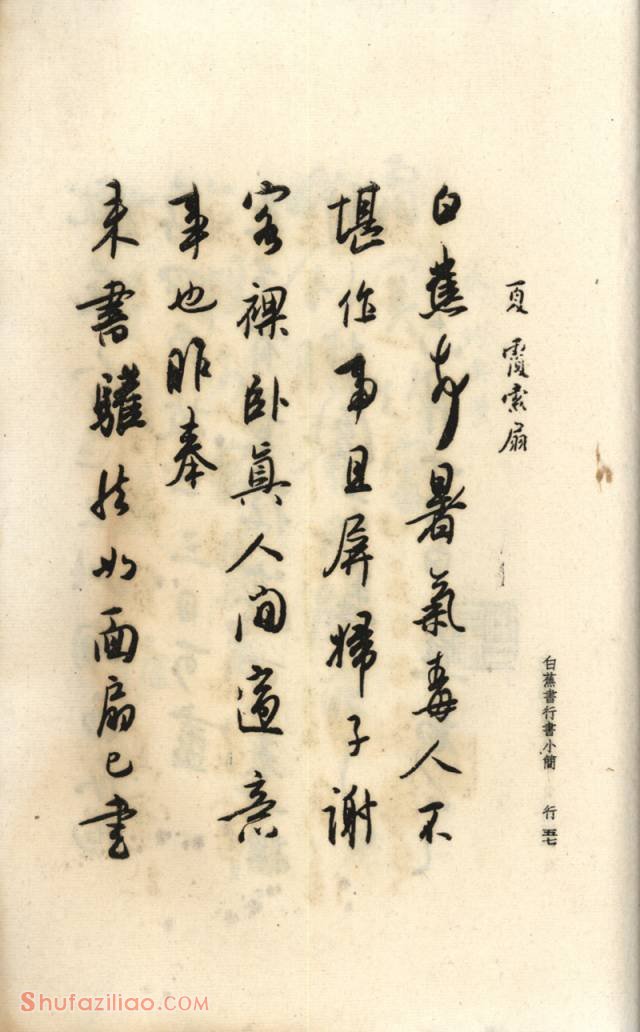 白蕉書行書小簡 行 五七
夏霞索扇
白蕉 暑氣毒人不
堪作事且屏婦子謝
客裸卧真人間適意
事也昨奉
来書驩然如面扇已書
Shufaziliao.COM